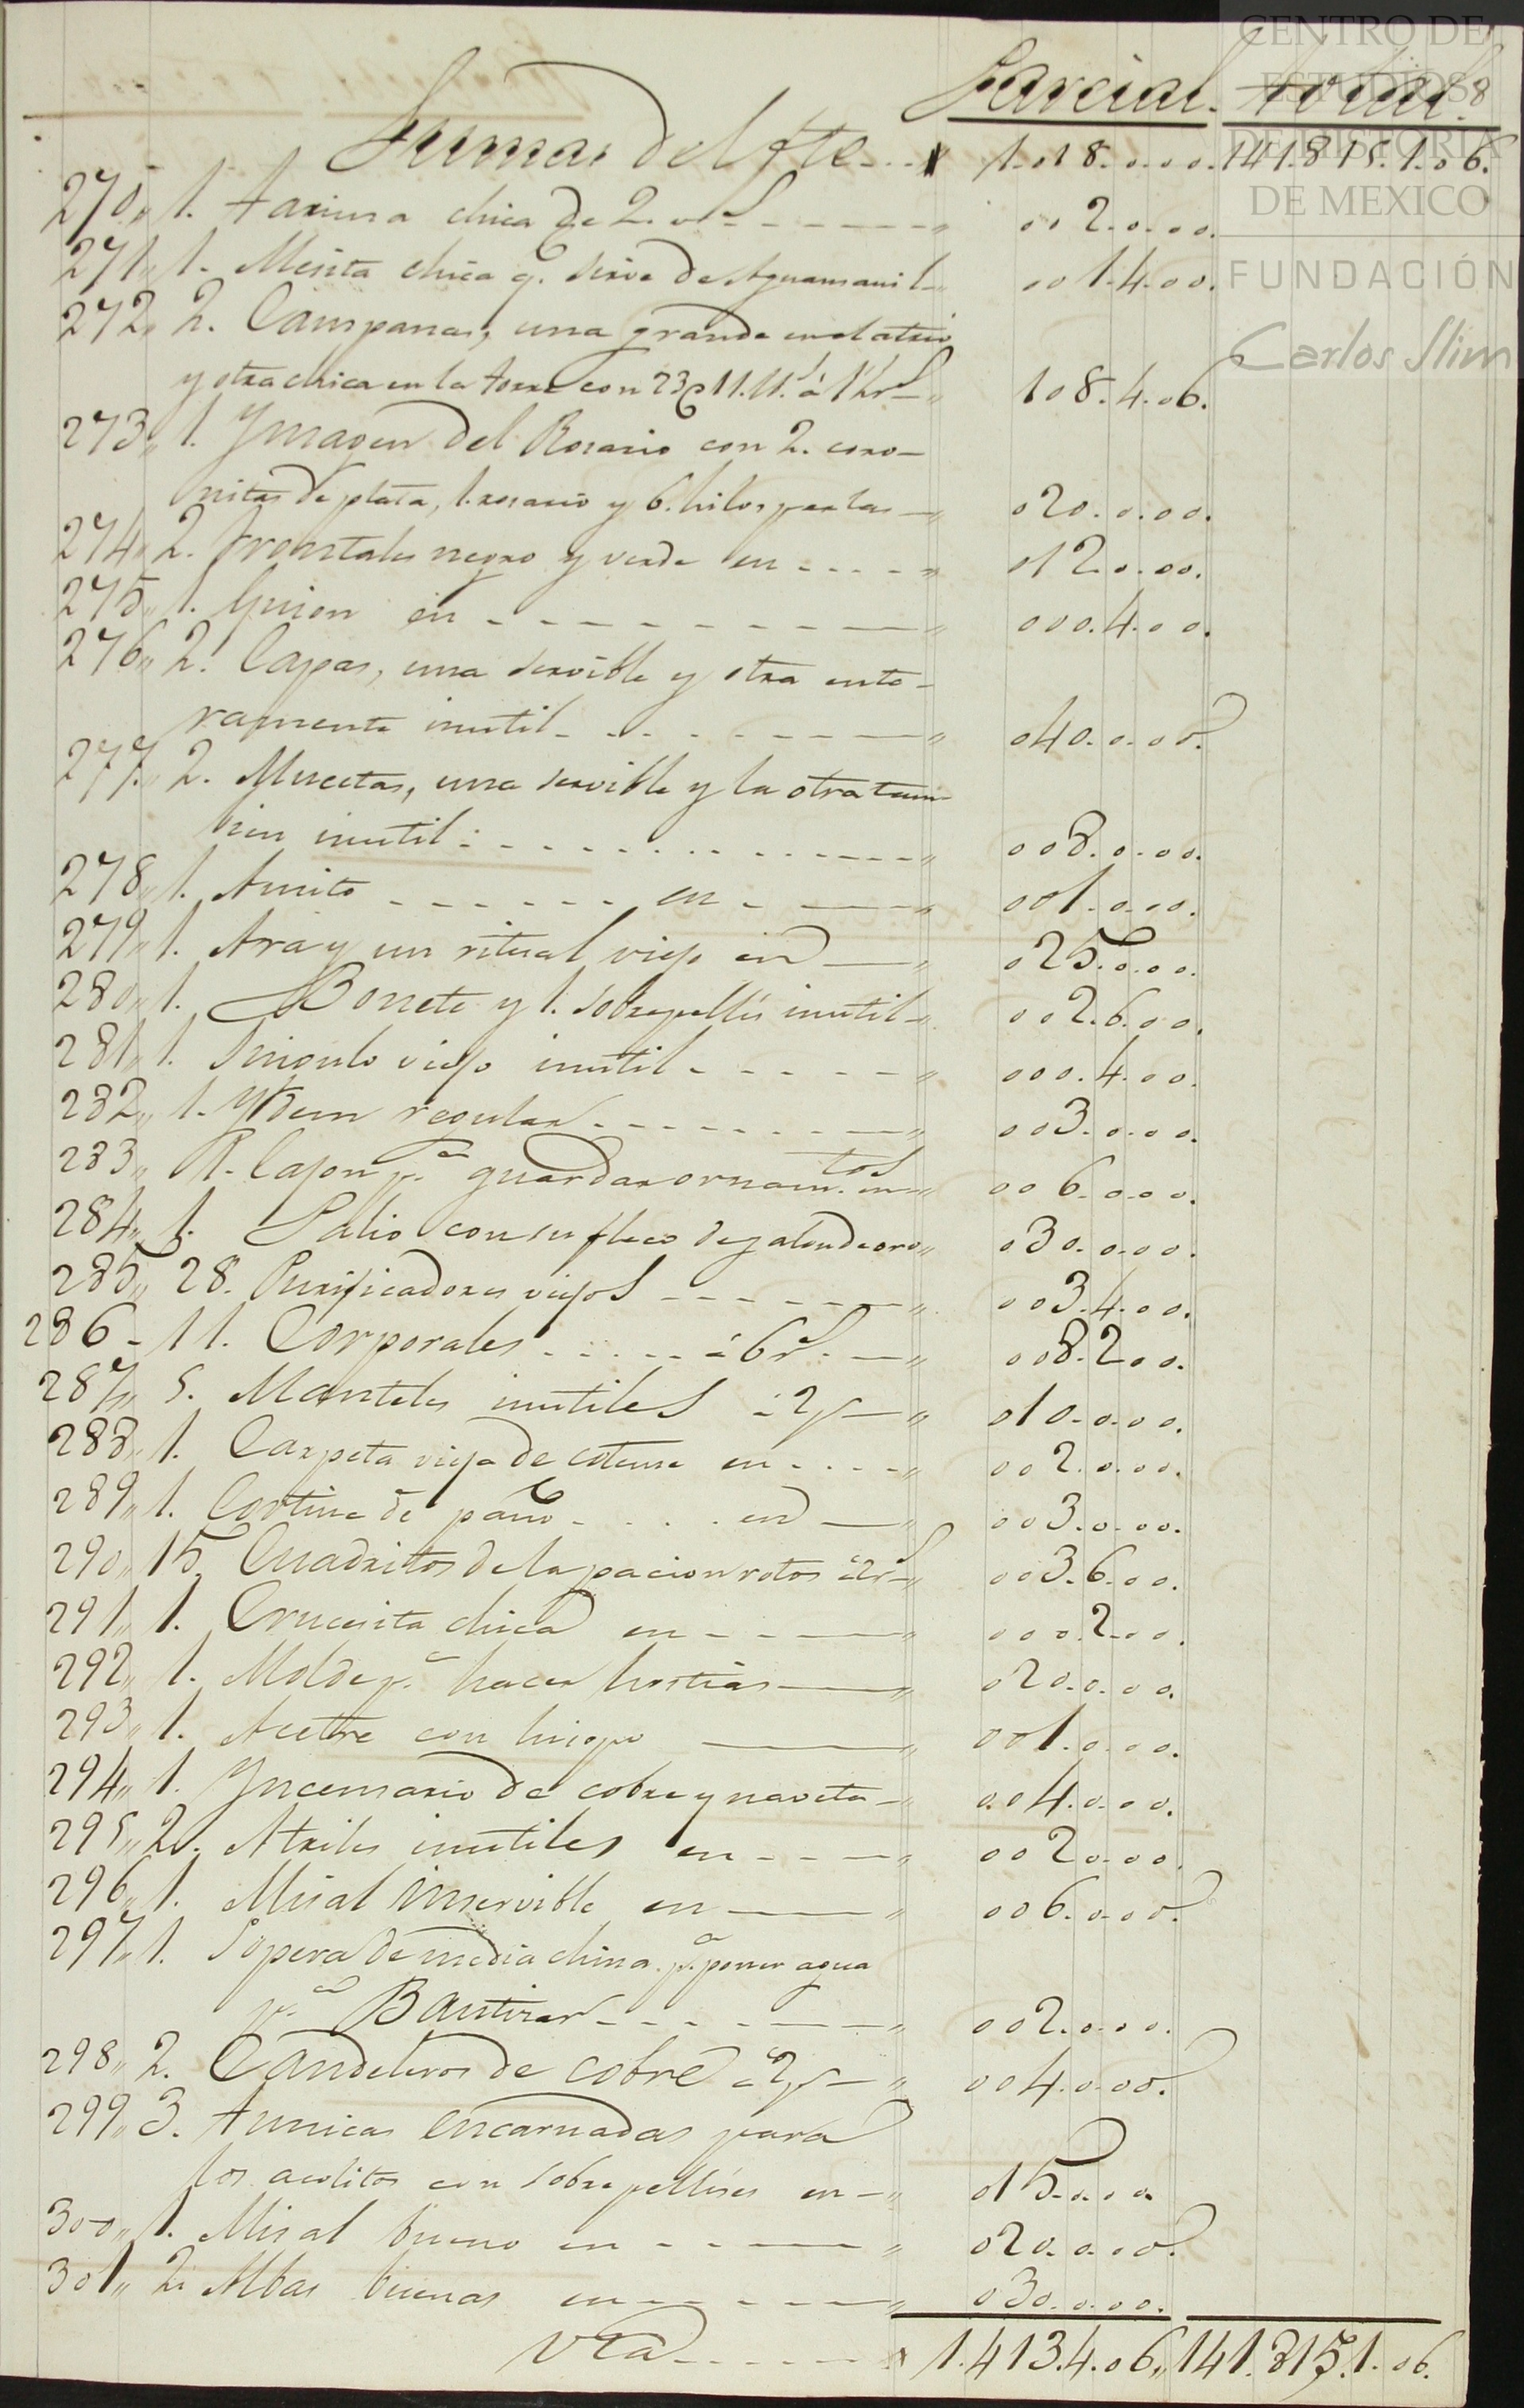 CENTRO DE
ESTUDIOS
DE HISTORIA
DE MEXICO
FUNDACIÓN
Carlos Slim
8
Parcial. Total.
Sumas del fte 1.018.0.00. 141.815.1.06.
270,, 1. tarima chica de 2. vs 002.0.00.
271,, 1. Mesita chica q. sirve de Aguamanil 001.4.00.
272,, 2. Campanas, una grande en el atrio
y otra chica en la torre con 23@ 11. ll.s á 1½ rs 108.4.06.
273,, 1. Ymagen del Rosario con 2. coro-
nitas de plata, 1. rosario y 6. hilos perlas 020.0.00.
274,, 2. frontales negro y verde en 012.0.00.
275,, 1. Guion en 000.4.00.
276,, 2. Capas, una servible y otra ente-
ramente inutil 040.0.00.
277,, 2. Mucetas, una servible y la otra tam-
bien inutil 008.0.00.
278,, 1. Amito en 001.0.00.
279,, 1. Ara y un ritual viejo en 025.0.00.
280,, 1. Bonete y 1. sobrepellis inutil 002.6.00.
281,, 1. Singulo viejo inutil 000.4.00.
282,, 1. Ydem regular 003.0.00.
283,, 1. Cajon p.a guardar ornam.tos en 006.0.00.
284,, 1. Palio con su fleco de galon de oro 030.0.00.
285,, 28. Purificadores viejos 003.4.00.
286- 11. Corporales á 6 rs. 008.2.00.
287,, 5. Manteles inutiles á 2 ps 010.0.00.
288,, 1. Carpeta vieja de cotense en 002.0.00.
289,, 1. Cortina de paño en 003.0.00.
290,, 15. Cuadritos de la pacion rotos á 2 rs 003.6.00.
291,, 1. Crucesita chica en 000.2.00.
292,, 1. Molde p.a hacer hostias 020.0.00.
293,, 1. Acetre con hisopo 001.0.00.
294,, 1. Yncensario de cobre y naveta 004.0.00.
295,, 2. Atriles inutiles en 002.0.00.
296,, 1. Misal inservible en 006.0.00.
297,, 1. Sopera de media china p.a poner agua
p.a Bautizar 002.0.00.
298,, 2. Candeleros de cobre á 2 ps 004.0.00.
299,, 3. tunicas encarnadas para
los acolitos con sobrepellises en 015.0.00
300,, 1. Misal bueno en 020.0.00.
301,, 2. Albas buenas en 030.0.00.
Vta 1.413.4.06,, 141.815.1.06.